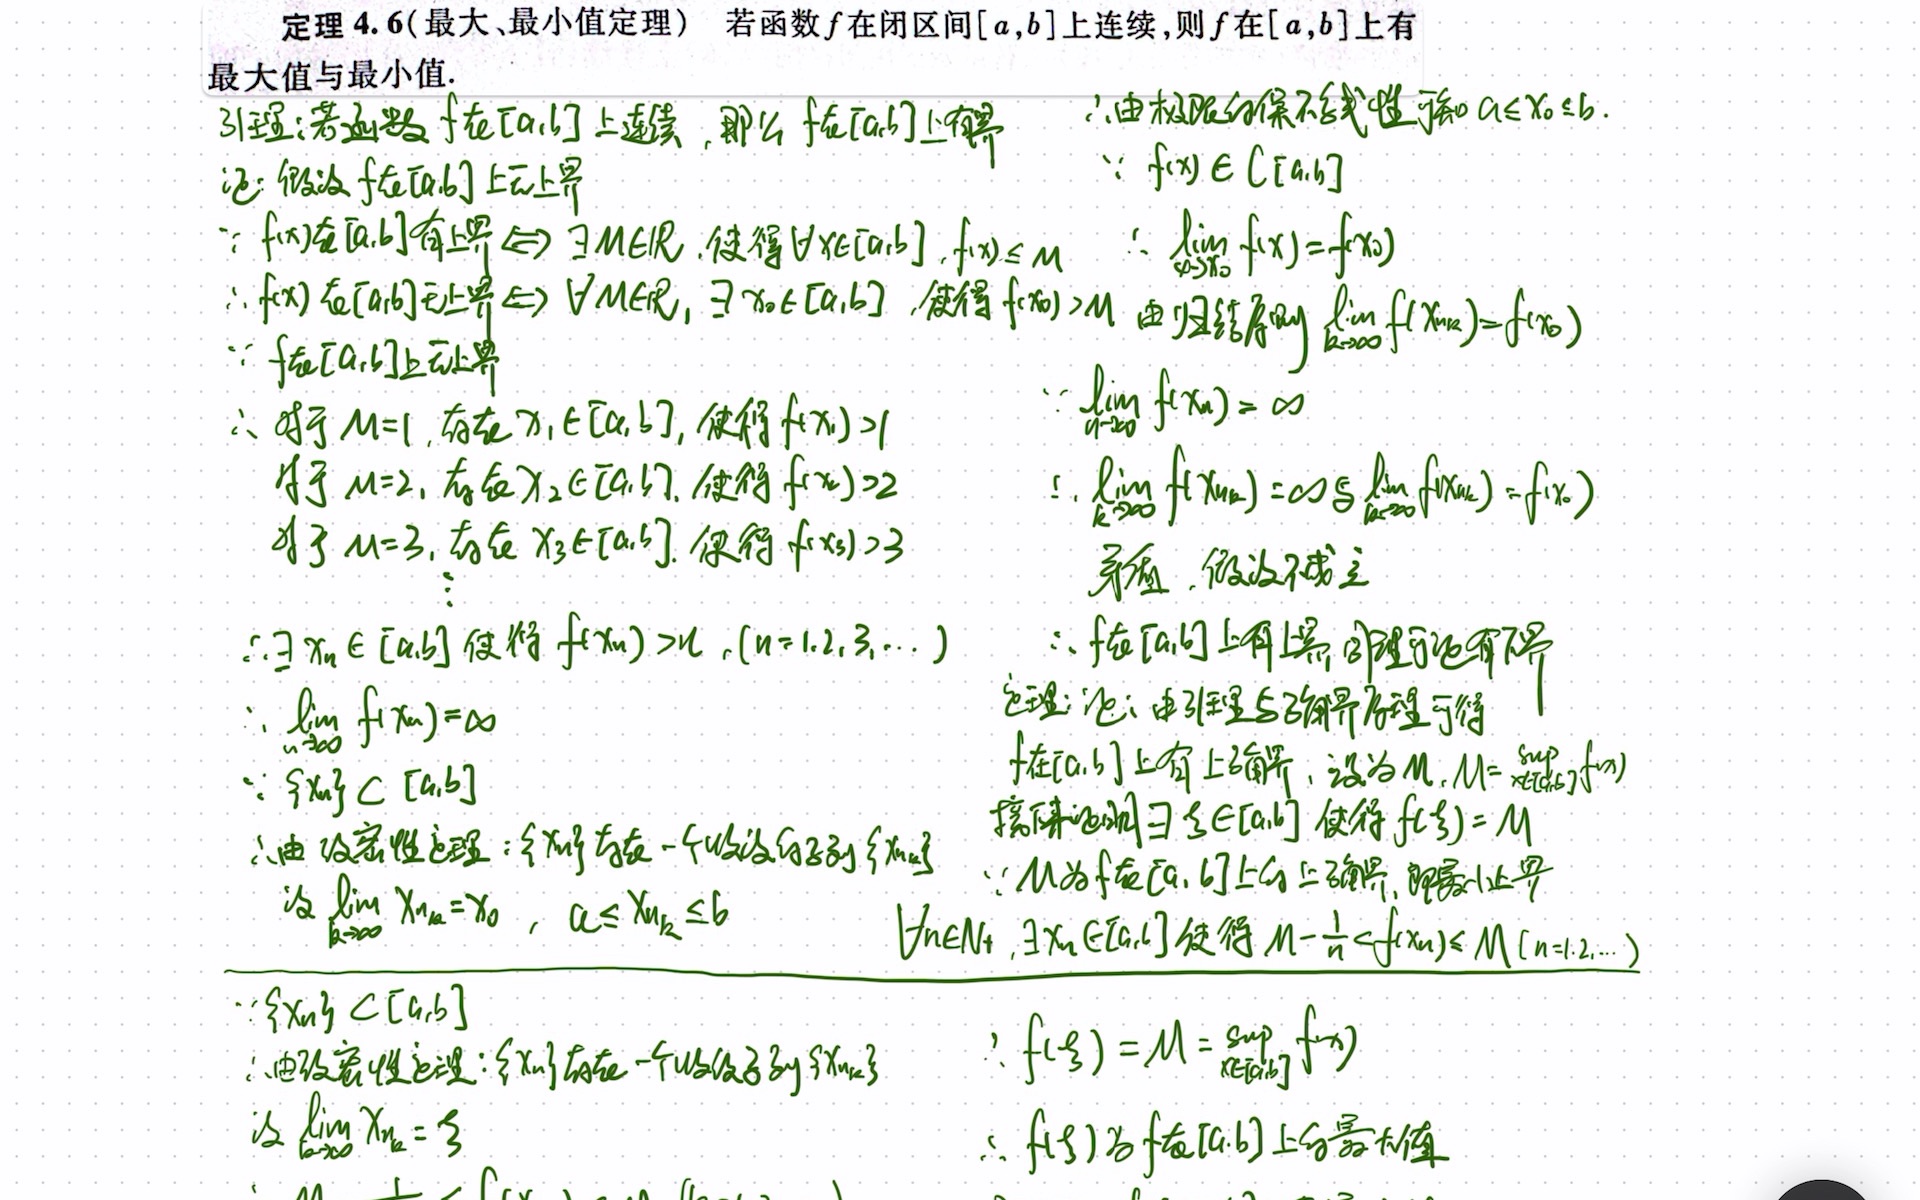 定理 4.6(最大、最小值定理) 若函数 f 在闭区间[a,b]上连续,则 f 在[a,b]上有
最大值与最小值.
引理:若函数 f在[a,b]上连续,那么 f在[a,b]上有界
证:假设 f在[a,b]上无上界
∵ f(x)在[a,b]有上界 ⇔ ∃M∈R,使得∀x∈[a,b],f(x)≤M
∴ f(x)在[a,b]无上界 ⇔ ∀M∈R,∃x₀∈[a,b],使得 f(x₀)>M
∵ f在[a,b]上无上界
∴ 对于 M=1,存在 x₁∈[a,b],使得 f(x₁)>1
对于 M=2,存在 x₂∈[a,b],使得 f(x₂)>2
对于 M=3,存在 x₃∈[a,b],使得 f(x₃)>3
⋮
∴ ∃xₙ∈[a,b]使得 f(xₙ)>n,(n=1,2,3,…)
∴ lim n→∞ f(xₙ)=∞
∵ {xₙ}⊂[a,b]
∴由致密性定理:{xₙ}存在一个收敛的子列{xₙₖ}
设 lim k→∞ xₙₖ=x₀,a≤xₙₖ≤b
∴由极限的保不等式性可知 a≤x₀≤b.
∵ f(x)∈C[a,b]
∴ lim x→x₀ f(x)=f(x₀)
由归结原则 lim k→∞ f(xₙₖ)=f(x₀)
∵ lim n→∞ f(xₙ)=∞
∴ lim k→∞ f(xₙₖ)=∞与 lim k→∞ f(xₙₖ)=f(x₀)
矛盾,假设不成立
∴ f在[a,b]上有上界,同理可证有下界
定理:证:由引理与确界原理可得
f在[a,b]上有上确界,设为M,M=sup x∈[a,b] f(x)
接下来证明∃ξ∈[a,b]使得 f(ξ)=M
∵ M为 f在[a,b]上的上确界,即最小上界
∀n∈N₊,∃xₙ∈[a,b]使得 M-1/n<f(xₙ)≤M (n=1,2,…)
∵ {xₙ}⊂[a,b]
∴由致密性定理:{xₙ}存在一个收敛子列{xₙₖ}
设 lim k→∞ xₙₖ=ξ
∴ f(ξ)=M=sup x∈[a,b] f(x)
∴ f(ξ)为 f在[a,b]上的最大值